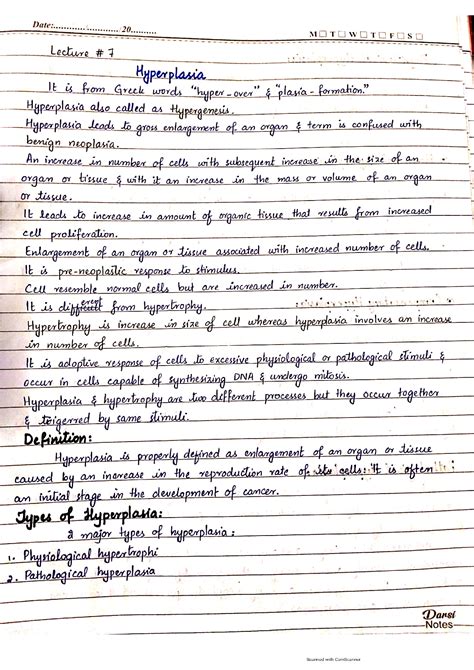 Date:........................20..........
M T W T F S
Lecture # 7
Hyperplasia
It is from Greek words "hyper-over" & "plasia-formation."
Hyperplasia also called as Hypergenesis.
Hyperplasia leads to gross enlargement of an organ & term is confused with
benign neoplasia.
An increase in number of cells with subsequent increase in the size of an
organ or tissue & with it an increase in the mass or volume of an organ
or tissue.
It leads to increase in amount of organic tissue that results from increased
cell proliferation.
Enlargement of an organ or tissue associated with increased number of cells.
It is pre-neoplastic response to stimulus.
Cell resemble normal cells but are increased in number.
It is different from hypertrophy.
Hypertrophy is increase in size of cell whereas hyperplasia involves an increase
in number of cells.
It is adoptive response of cells to excessive physiological or pathological stimuli &
occur in cells capable of synthesizing DNA & undergo mitosis.
Hyperplasia & hypertrophy are two different processes but they occur together
& teigerred by same stimuli.
Definition:
Hyperplasia is properly defined as enlargement of an organ or tissue
caused by an increase in the reproduction rate of its cells. It is often
an initial stage in the development of cancer.
Types of Hyperplasia:
2 major types of hyperplasia:
1. Physiological hypertrophi
2. Pathological hyperplasia
Darsi
Notes
Scanned with CamScanner